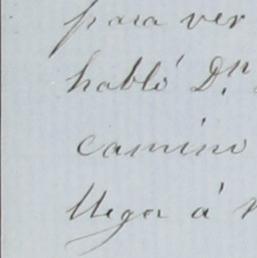 para ver
habló Dn.
camino
llega á